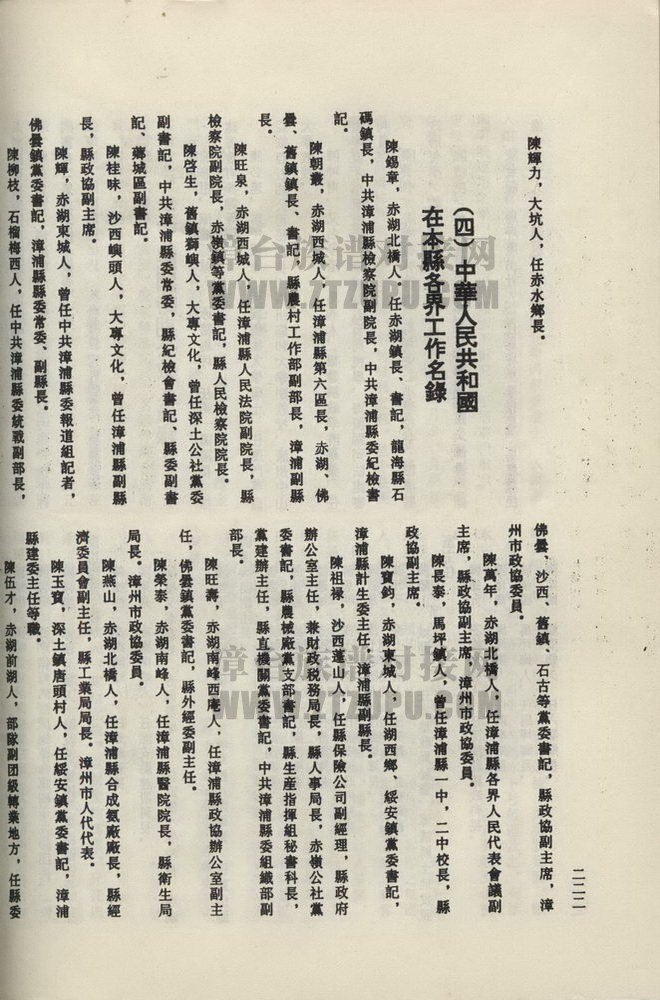 陳輝力，大坑人，任赤水鄉長。
(四)中華人民共和國
在本縣各界工作名錄
陳錫章，赤湖北橋人。任赤湖鎮長、書記，龍海縣石
碼鎮長，中共漳浦縣檢察院副院長，中共漳浦縣委紀檢書
記。
陳朝叢，赤湖西城人，任漳浦縣第六區長，赤湖、佛
曇、舊鎮鎮長、書記，縣農村工作部副部長，漳浦副縣
長。
陳旺泉，赤湖西城人，任漳浦縣人民法院副院長，縣
檢察院副院長，赤嶺鎮等黨委書記，縣人民檢察院院長。
陳啓生，舊鎮獅嶼人，大專文化，曾任深土公社黨委
副書記，中共漳浦縣委常委，縣紀檢會書記、縣委副書
記、薌城區副書記。
陳桂味，沙西嶼頭人，大專文化，曾任漳浦縣副縣
長，縣政協副主席。
陳輝，赤湖東城人，曾任中共漳浦縣委報道組記者，
佛曇鎮黨委書記，漳浦縣縣委常委、副縣長。
陳柳枝，石榴梅西人，任中共漳浦縣委統戰副部長，
佛曇、沙西、舊鎮、石古等黨委書記，縣政協副主席，漳
州市政協委員。
陳萬年，赤湖北橋人，任漳浦縣各界人民代表會議副
主席，縣政協副主席，漳州市政協委員。
陳長泰，馬坪鎮人，曾任漳浦縣一中，二中校長，縣
政協副主席。
陳寶鈞，赤湖東城人，任湖西鄉、綏安鎮黨委書記，
漳浦縣計生委主任，漳浦縣副縣長。
陳祖祿，沙西蓬山人，任縣保險公司副經理，縣政府
辦公室主任，兼財政稅務局長，縣人事局長，赤嶺公社黨
委書記，縣農械廠黨支部書記，縣生產指揮組秘書科長，
黨建辦主任，縣直機關黨委書記，中共漳浦縣委組織部副
部長。
陳旺壽，赤湖南峰西庵人，任漳浦縣政協辦公室副主
任，佛曇鎮黨委書記，縣外經委副主任。
陳榮泰，赤湖南峰人，任漳浦縣醫院院長，縣衛生局
局長。漳州市政協委員。
陳燕山，赤湖北橋人，任漳浦縣合成氨廠廠長，縣經
濟委員會副主任，縣工業局局長。漳州市人代代表。
陳玉寶，深土鎮唐頭村人，任綏安鎮黨委書記，漳浦
縣建委主任等職。
陳伍才，赤湖前湖人，部隊副团級轉業地方，任縣委
二二二
漳台族谱对接网
WWW.ZTZUPU.COM
漳台族谱对接网
WWW.ZTZUPU.COM